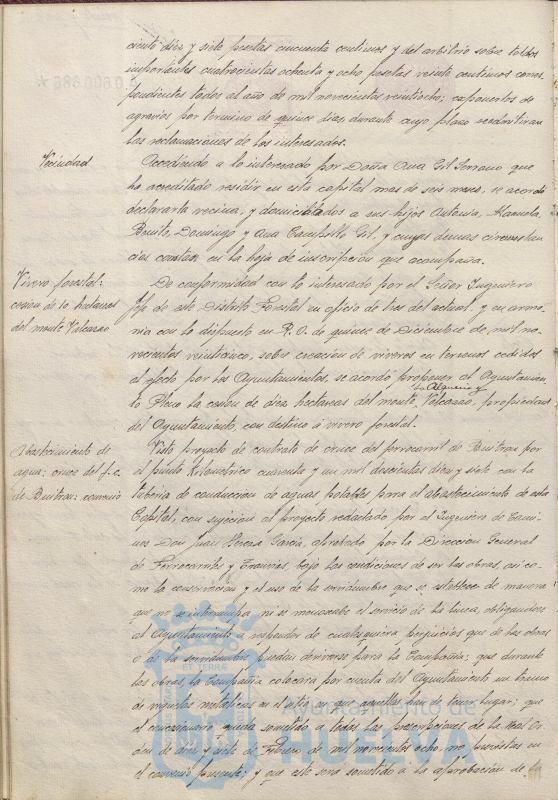 ciento diez y siete pesetas cincuenta centimos y del arbitrio sobre toldos
importantes cuatrocientas ochenta y ocho pesetas veinte centimos corres-
pondientes todos al año de mil novecientos veintiocho; exponerlos de
agravios por termino de quince dias durante cuyo plazo se admitiran
las reclamaciones de los interesados.
Vecindad
Accediendo a lo interesado por Doña Ana Gil Serrano que
ha acreditado residir en esta capital mas de seis meses, se acordó
declararla vecina, y domiciliados a sus hijos Antonia, Manuela,
Benito, Domingo y Ana Campillo Gil, y cuyas demas circunstan-
cias constan en la hoja de inscripcion que acompaña.
Vivero forestal:
cesion de 10 hectareas
del monte Valcazao
De conformidad con lo interesado por el Señor Ingeniero
Jefe de este Distrito Forestal en oficio de tres del actual, y en armo-
nia con lo dispuesto en R. O. de quince de Diciembre de mil no-
vecientos veinticinco, sobre creacion de viveros en terrenos cedidos
al efecto por los Ayuntamientos, se acordó proponer al Ayuntamien-
to Pleno la cesion de diez hectareas del monte La Alqueria y Valcazao, propiedad
del Ayuntamiento, con destino a vivero forestal.
Abastecimiento de
agua: cruce del f. c.
de Buitron: convenio
Visto proyecto de contrato de cruce del ferrocarril de Buitron por
el punto kilometrico cuarenta y un mil doscientos diez y siete con la
tuberia de conduccion de aguas potables para el abastecimiento de esta
Capital, con sujecion al proyecto redactado por el Ingeniero de Cami-
nos Don Juan García, aprobado por la Direccion General
de Ferrocarriles y Tranvias, bajo las condiciones de ser las obras, asi co-
mo la conservacion y el uso de la servidumbre que se establece de manera
que no se interrumpa ni se menoscabe el servicio de la linea, obligandose
el Ayuntamiento a responder de cualesquiera perjuicios que de las obras
o de la servidumbre puedan derivarse para la Compañia; que durante
las obras, la Compañia colocará por cuenta del Ayuntamiento un tramo
de viguetas metalicas en el sitio en que aquellas han de tener lugar; que
el concesionario queda sometido a todas las prescripciones de la Real Or-
den de diez y siete de Febrero de mil novecientos ocho, no previstas en
el convenio presente; y que este sera sometido a la aprobacion de la
Ayuntamiento de
HUELVA